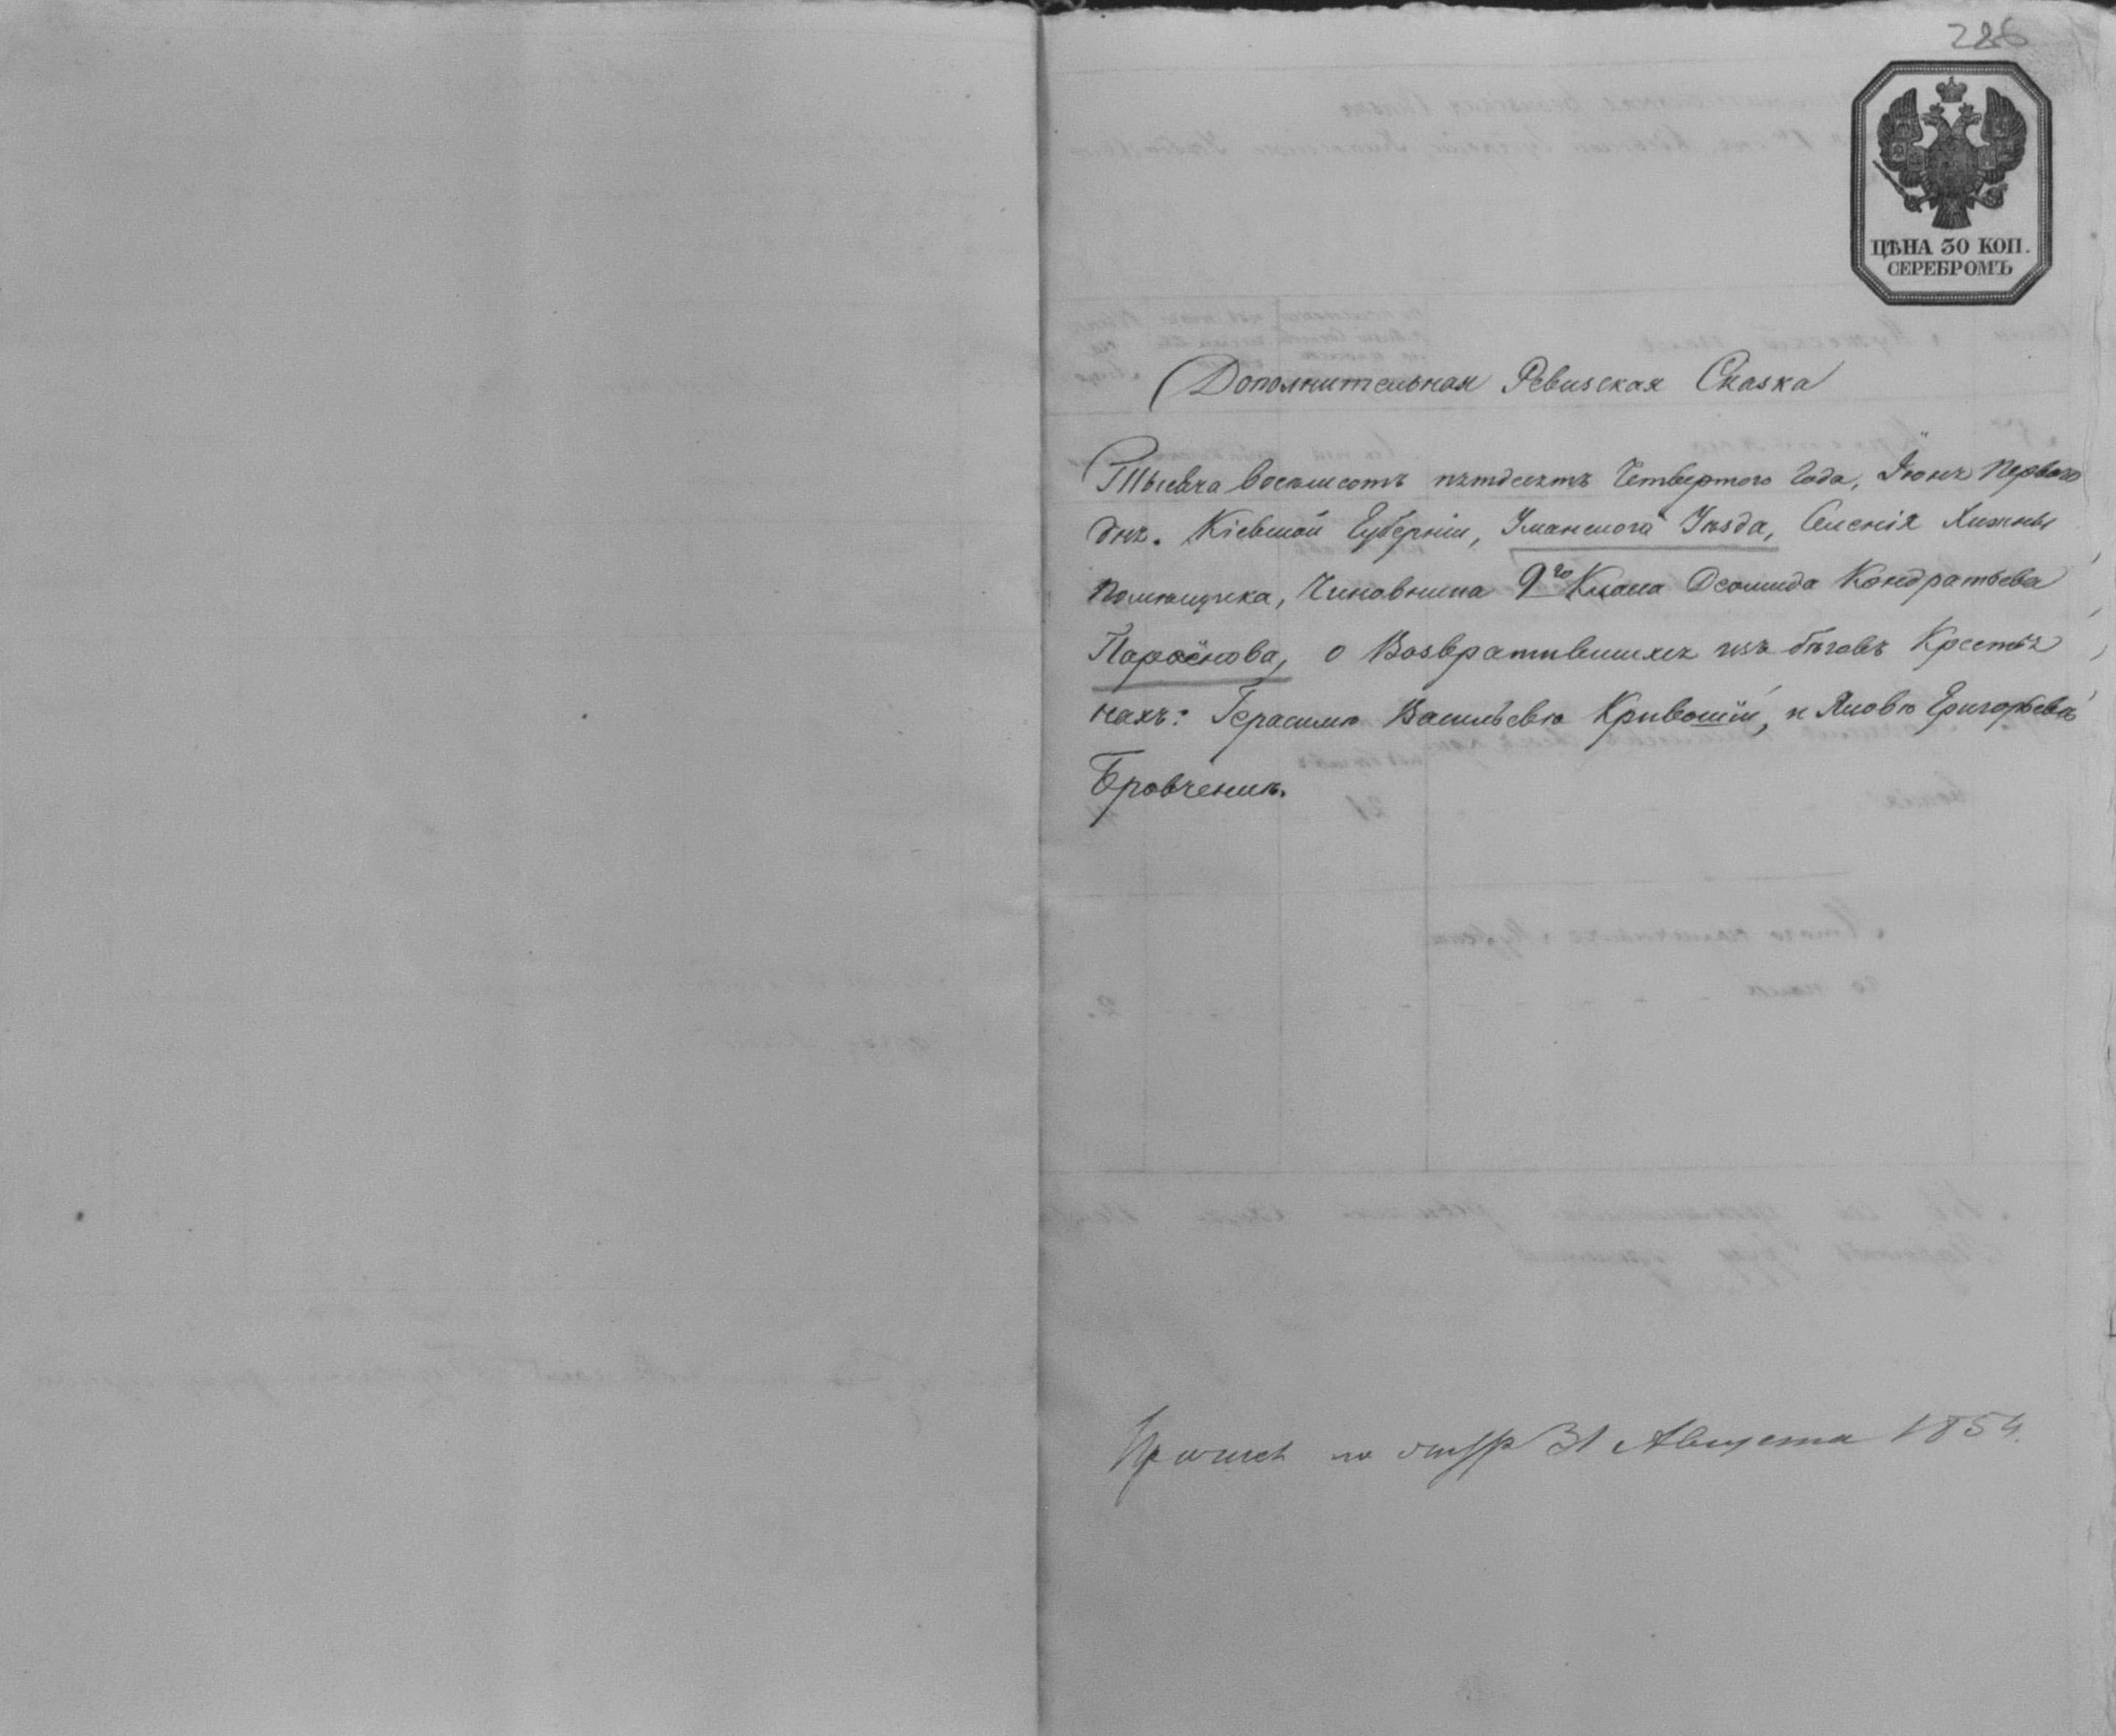 286
ЦѢНА 30 КОП.
СЕРЕБРОМЪ
Дополнительная Ревизская Сказка
Тысяча восемьсотъ пятдесятъ Четвертого Года, Іюня Перваго
дня. Кіевской Губерніи, Уманского Уѣзда, Селенія Хижны
Помѣщика, Чиновника 9го Класа Деомида Кондратьева
Парѳёнова, о Возвратившихся изъ бѣговъ Крестья
нахъ: Герасимѣ Васильевѣ Кривошіи, и Яковѣ Григорьевѣ
Бровченкѣ.
31 Августа 1854.